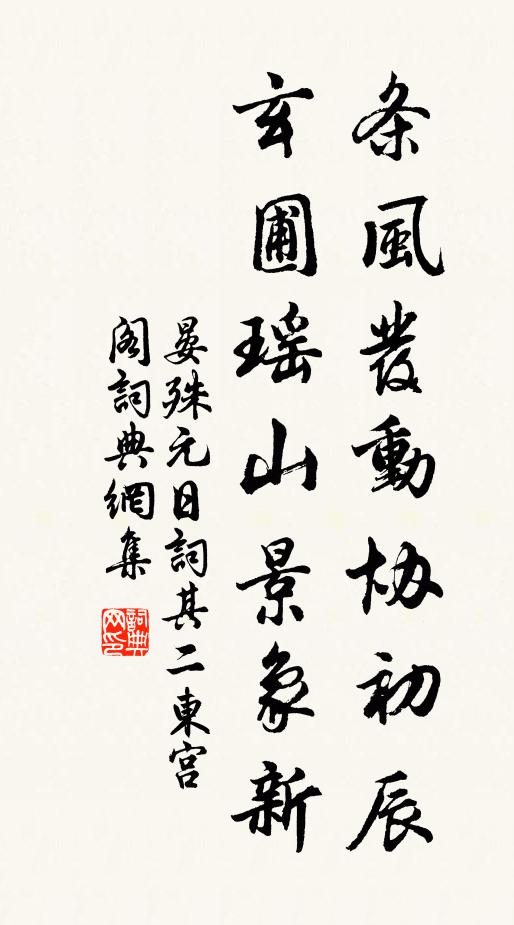 条風發動协初辰
玄圃瑶山景象新
晏殊元日詞其二東宮
阁詞典網集
詞典网印